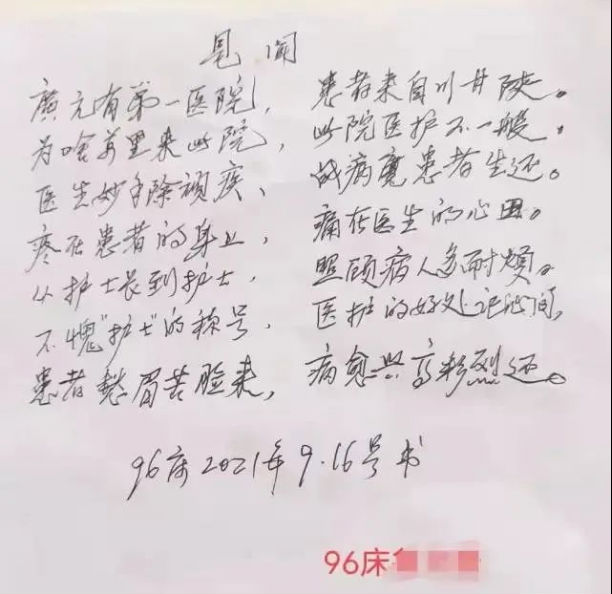 見闻
廣元有第一医院， 患者来自川甘陕。
为啥万里来此院， 此院医护不一般，
医生妙手除顽疾、 战病魔患者生还。
疼在患者的身上， 痛在医生的心田。
从护士长到护士， 照顾病人多耐烦。
不愧"护士"的称号， 医护的好处记心间，
患者愁眉苦脸来， 病愈兴高彩烈还。
96床2021年9.16号书
96床